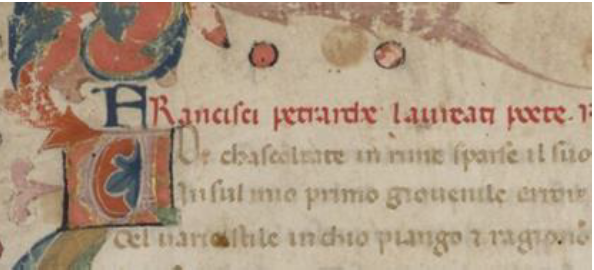 FRancisci petrarche laureati poete.
VOi chascoltate in rime sparse il suo
In sul mio primo giouenile errore
Del uario stile in chio piango ⁊ ragiono